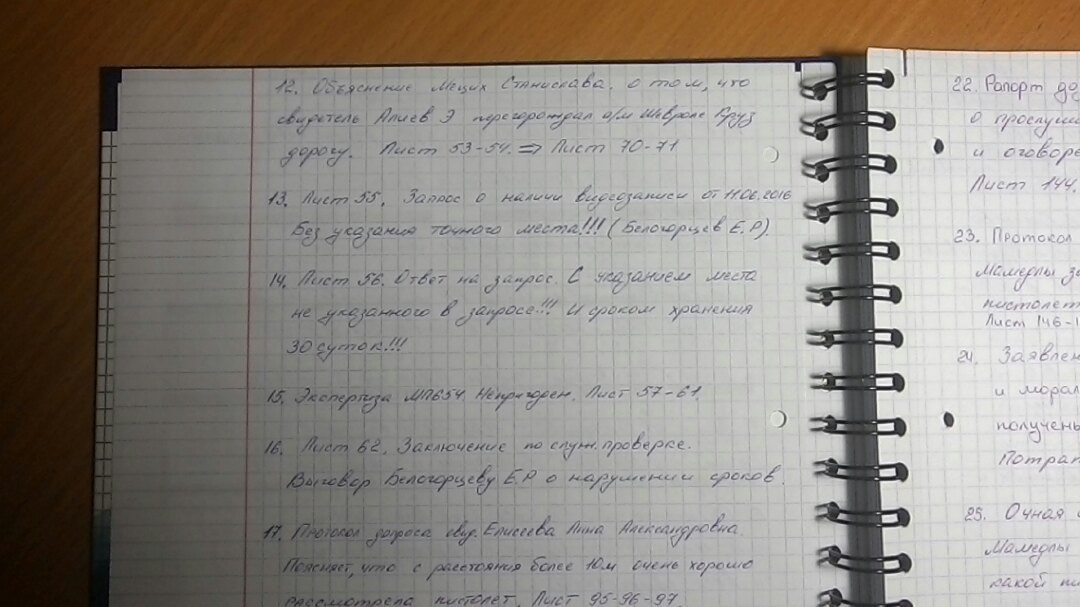 12. Объяснение Мецих Станислава. о том, что
свидетель Алиев Э перегорождал а/м Шевроле Круз
дорогу. Лист 53-54. ⇒ Лист 70-71
13. Лист 55. Запрос о наличи видеозаписи от 11.06.2016
Без указания точного места!!! (Белогорцев Е.Р).
14. Лист 56. Ответ на запрос. С указанием места
не указанного в запросе!!! И сроком хранения
30 суток!!!
15. Экспертиза МП654 Непригоден. Лист 57-61.
16. Лист 62. Заключение по служ. проверке.
Выговор Белогорцеву Е.Р о нарушении сроков.
17. Протокол допроса свид. Елисеева Анна Александровна.
Поясняет, что с расстояния более 10м очень хорошо
рассмотрела пистолет. Лист 95-96-97.
22. Рапорт до
о прослуш
и оговоре
Лист 144.
23. Протокол
Мамедлы
пистолет
Лист 146-1
24. Заявлен
и морал
получены
Потрат
25. Очная
Мамедлы
какой